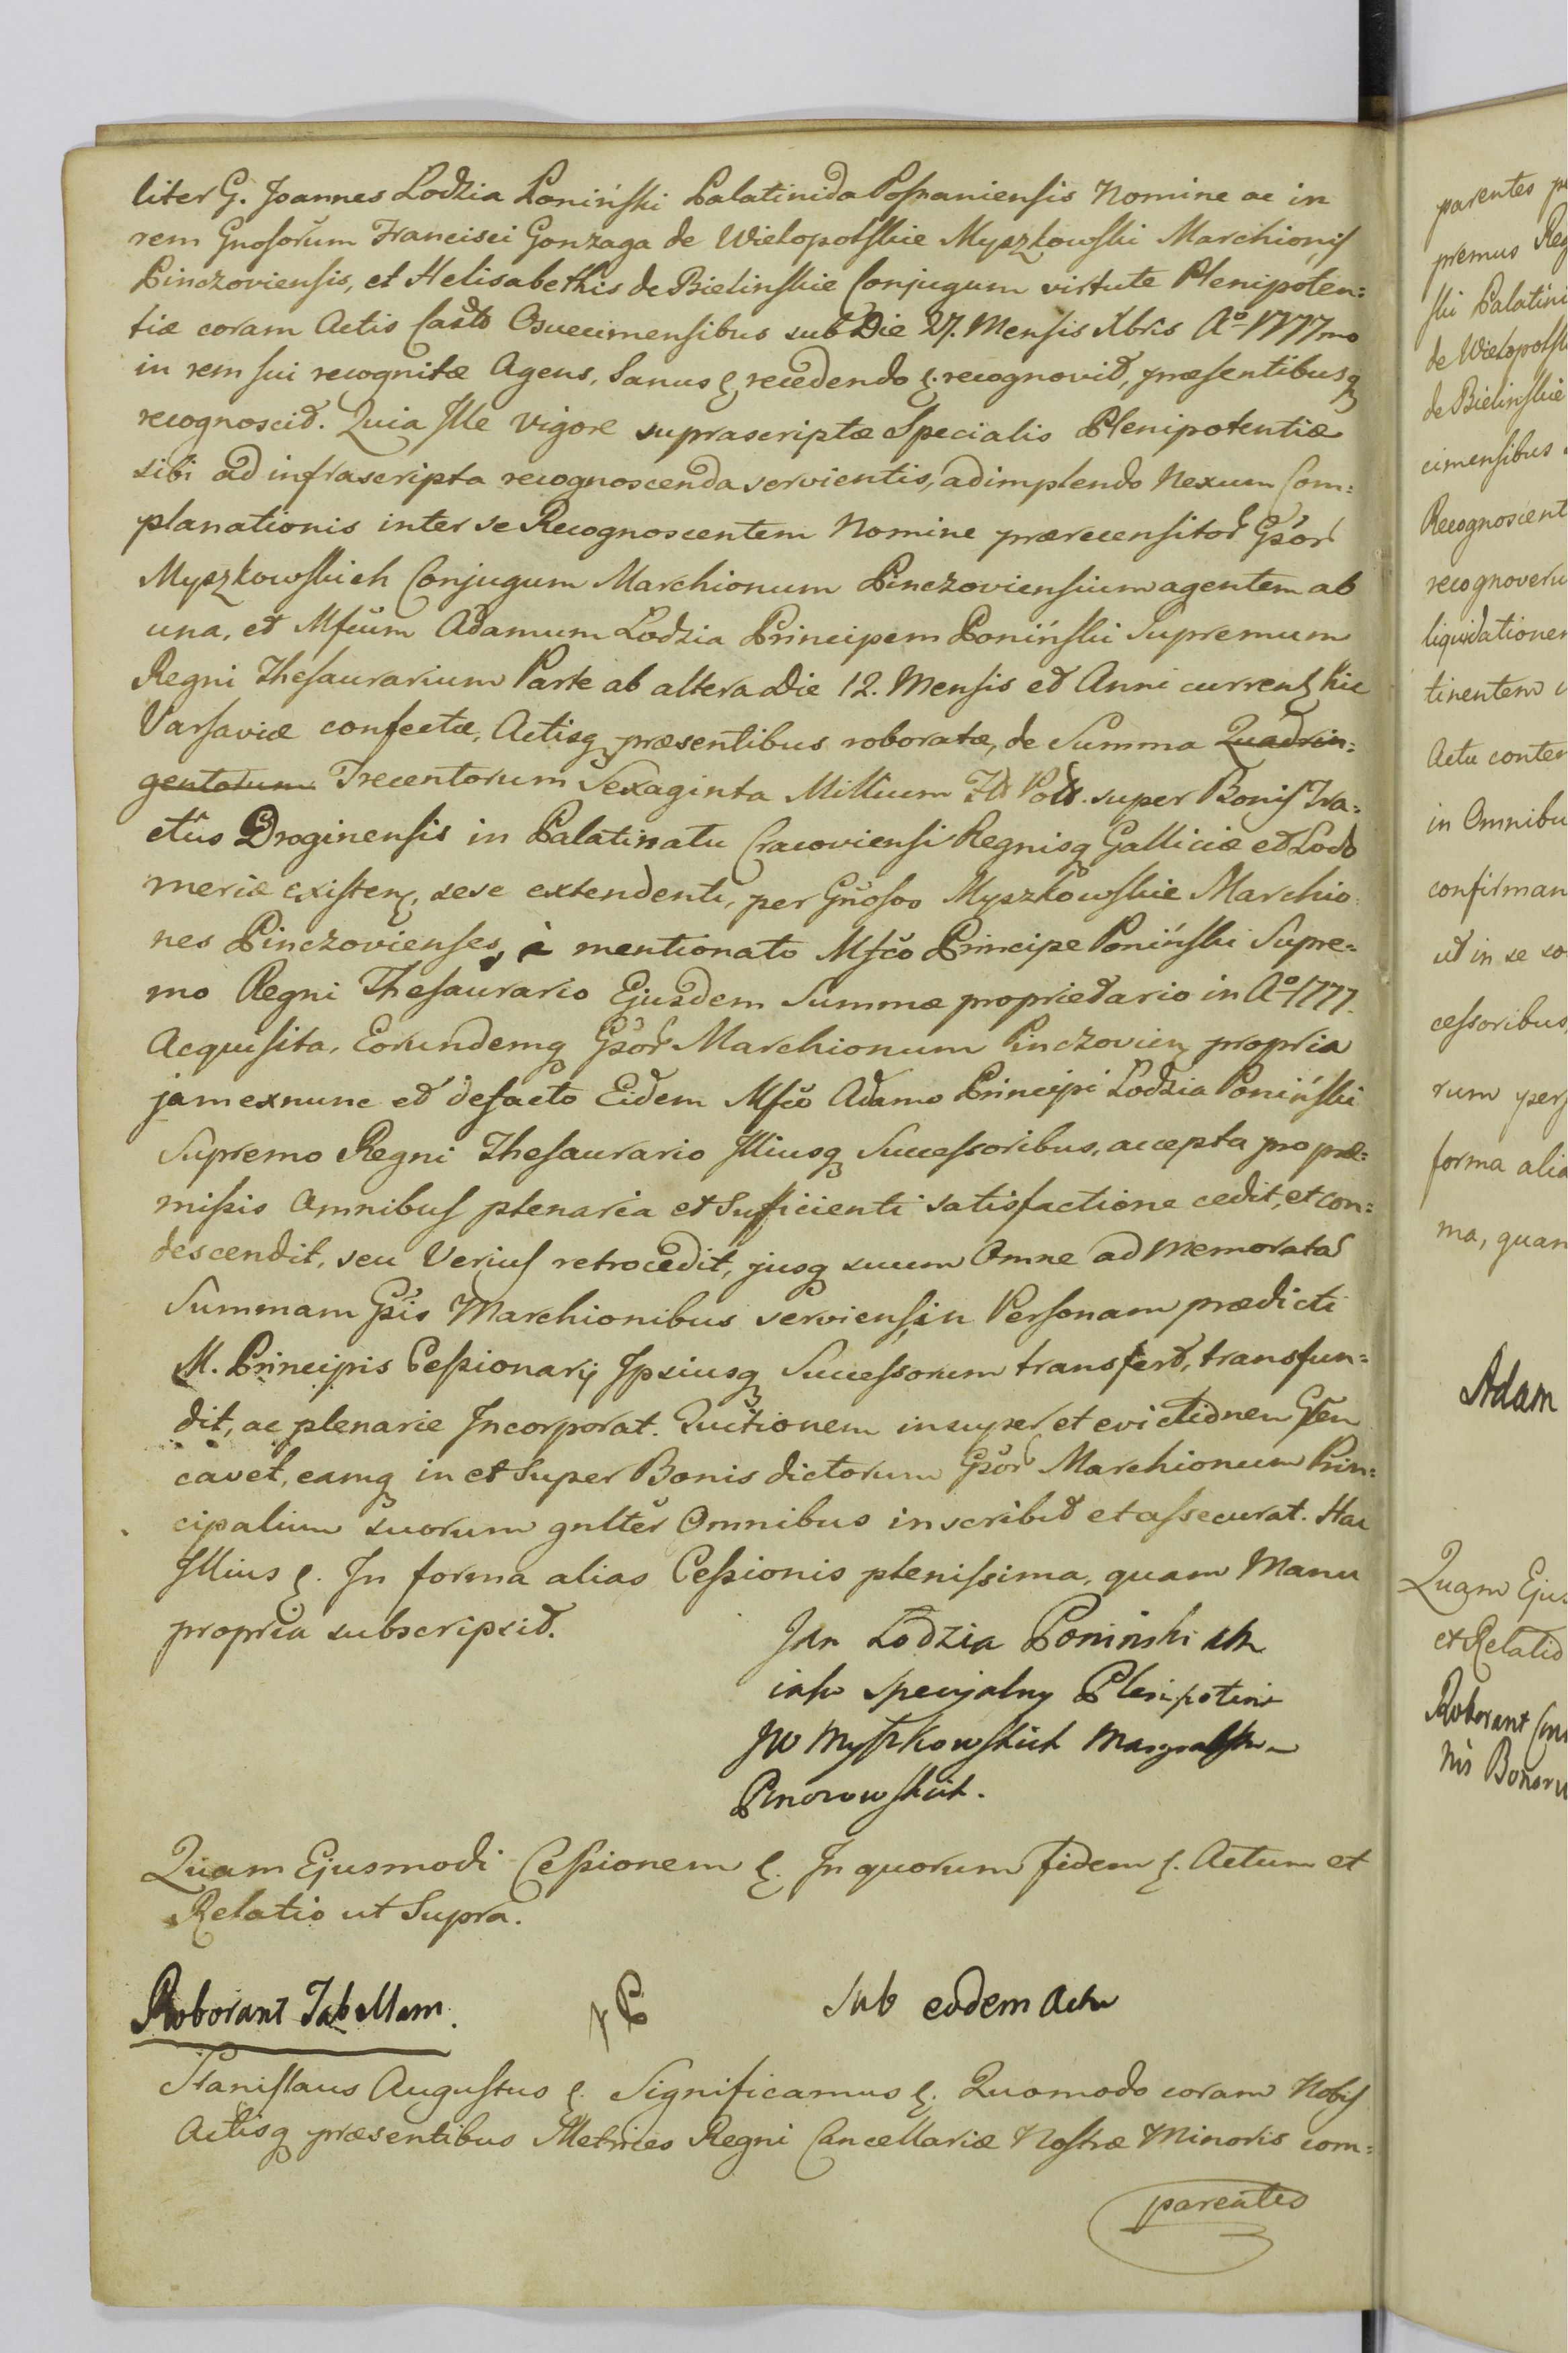 liter G. Joannes Lodzia Poniński Palatinida Posnaniensis Nomine ac in
rem Gnosorum Francisci Gonzaga de Wielopolskie Myszkowski Marchionis
Pinczoviensis, et Helisabethis de Bielinskie Conjugum virtute Plenipoten:
tiæ coram Actis Castr Osuecimensibus sub Die 27. Mensis Xbris Aº 1777mo
in rem sui recognitæ Agens, Sanus ę recedendo ę. recognovit, præsentibusq
recognoscit. Quia Ille vigore suprascriptæ Specialis Plenipotentiæ
sibi ad infrascripta recognoscenda servientis, adimplendo Nexum Com:
planationis inter se Recognoscentem Nomine prærecensitor Gsor
Myszkowskich Conjugum Marchionum Pinczoviensium agentem ab
una, et Mfcum Adamum Lodzia Principem Poniński Supremum
Regni Thesaurarium Parte ab altera Die 12. Mensis et Anni currentę hic
Varsaviæ confectæ, Actisq præsentibus roboratæ, de Summa Quadrin:
gentorum Trecentorum Sexaginta Millium Fls Pols. super Bonis Tra:
ctûs Droginensis in Palatinatu Cracoviensi Regnisq Galliciæ et Lodo
meriæ existenę, sese extendenti, per Gnosos Myszkowskie Marchio
nes Pinczovienses, à mentionato Mfco Principe Poniński Supre:
mo Regni Thesaurario Ejusdem Summæ proprietario in Aº 1777.
Acquisita, Eorundemq Gsor Marchionum Pinczovienę propria
jam exnunc et defacto Eidem Mfco Adamo Principi Lodzia Poniński
Supremo Regni Thesaurario Illiusq Successoribus, accepta pro præ:
missis Omnibus plenaria et Sufficienti satisfactione cedit, et con:
descendit, seu Verius retrocedit, jusq suum Omne ad Memoratã
Summam Gsis Marchionibus serviens, in Personam prædicti
M. Principis Cessionarij Ipsiusq Successorum transfert, transfun:
dit, ac plenarie Incorporat. Quitionem insuper et evictionem Gsen
cavet, eamq in et Super Bonis dictorum Gsor Marchionum Prin:
cipalium suorum gnlter Omnibus inscribit et assecurat. Hac
Illius ę. In forma alias Cessionis plenissima, quam Manu
propria subscripsit.
Jan Łodzia Poninski
iako specyalny Plenipotent
JW Myszkowskich Margrabstw
Pinczowskich.
Quam Ejusmodi Cessionem ę. In quorum fidem ę. Actum et
Relatio ut Supra.
Roborant Tabellam. Sub eodem Actu
Stanislaus Augustus ę. Significamus ę. Quomodo coram Nobis
Actisq præsentibus Metrices Regni Cancellariæ Nostræ Minoris com:
parentes
parentes
premus Reg
ski Palatini
de Wielopolsk
de Bielinskie
cimensibus
Recognoscent
recognoveru
liquidationem
tinentem
Actu conten
in Omnibu
confirman
ut in se
cessoribus,
rum
forma alia
ma, quam
Adam
Quam Ejus
et Relatio
Roborant
nis Bonoru